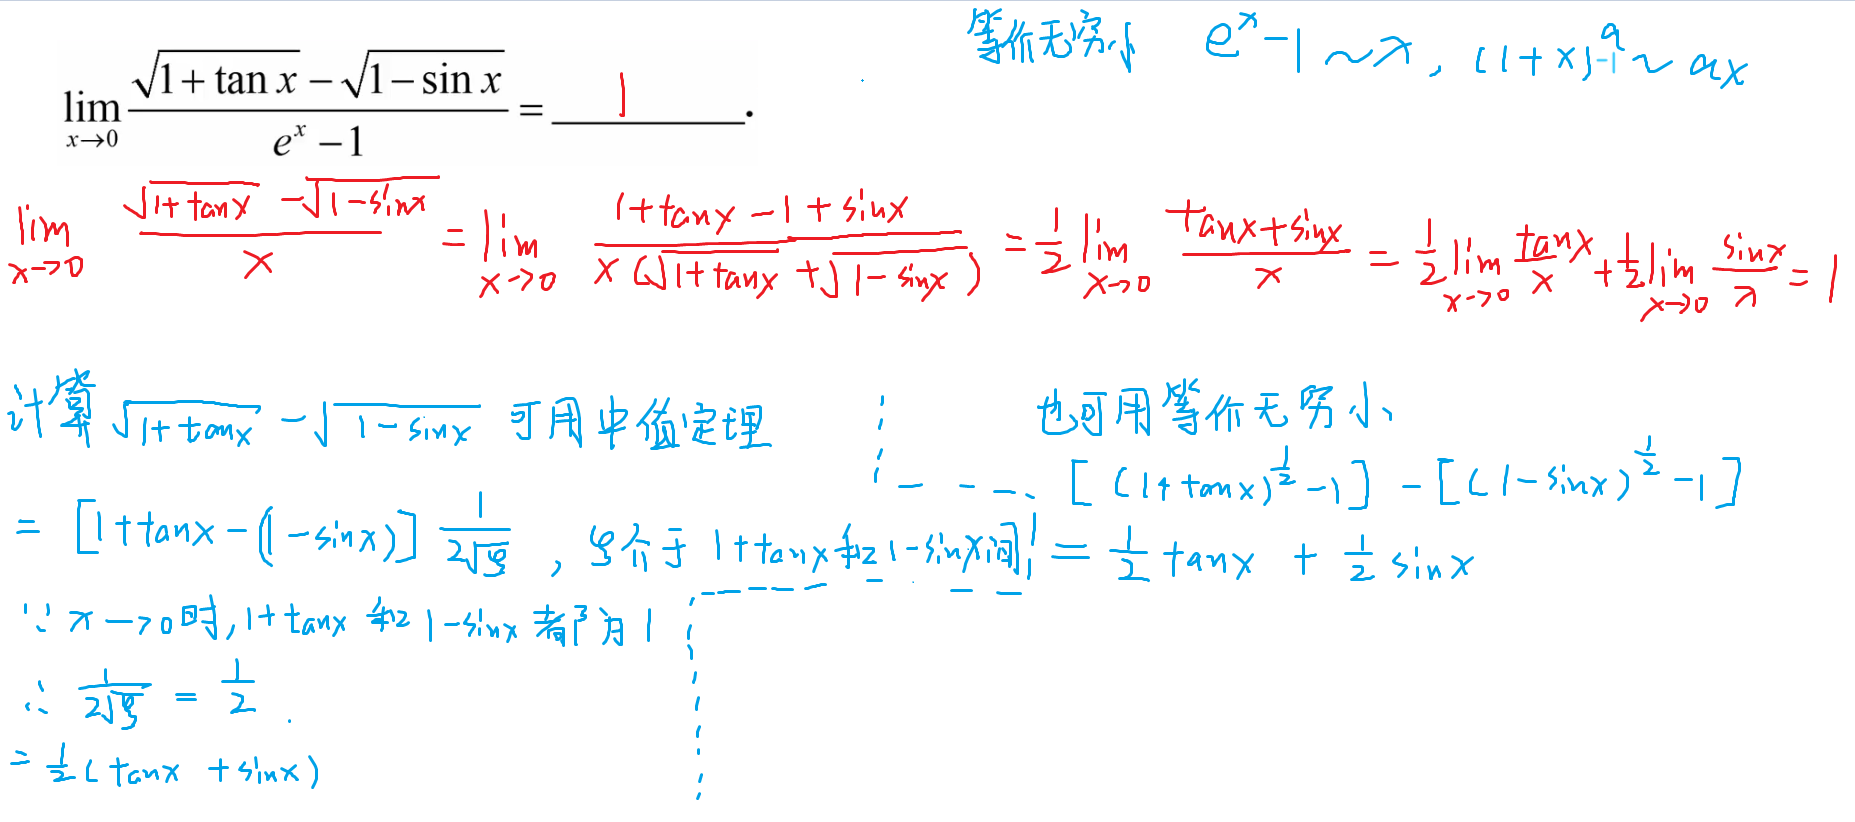 等价无穷小 e^x-1~x, (1+x)^a-1~ax
lim_{x→0} (√(1+tan x) - √(1-sin x))/(e^x - 1) = 1.
lim_{x→0} (√(1+tanx) - √(1-sinx))/x = lim_{x→0} (1+tanx-1+sinx)/(x(√(1+tanx)+√(1-sinx))) = 1/2 lim_{x→0} (tanx+sinx)/x = 1/2 lim_{x→0} tanx/x + 1/2 lim_{x→0} sinx/x = 1
计算 √(1+tanx) - √(1-sinx) 可用中值定理
= [1+tanx-(1-sinx)] 1/(2√ξ), ξ介于 1+tanx和1-sinx间
∵ x→0时,1+tanx 和 1-sinx 都为 1
∴ 1/(2√ξ) = 1/2.
= 1/2(tanx+sinx)
也可用等价无穷小
[(1+tanx)^{1/2}-1] - [(1-sinx)^{1/2}-1]
= 1/2 tanx + 1/2 sinx